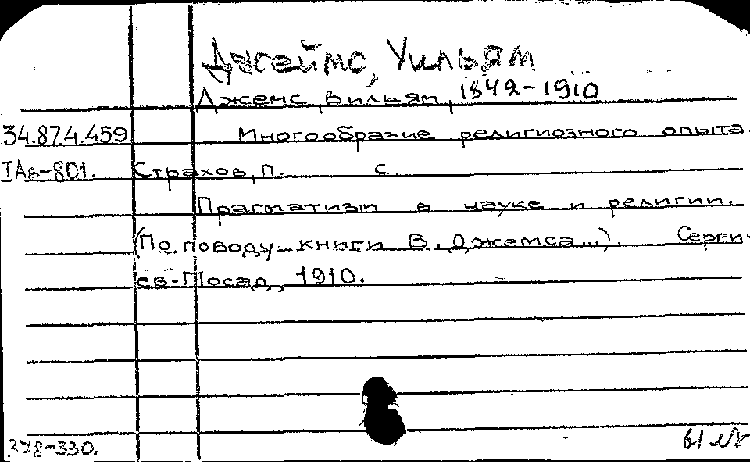 Джеймс, Уильям
Джемс, Вильям, 1842-1910
34.87.4.459 Многообразие религиозного опыта.
Страхов, П. С.
Прагматизм в науке и религии.
(По поводу книги В. Джемса...). Серги-
ев-Посад, 1910.
378-330.